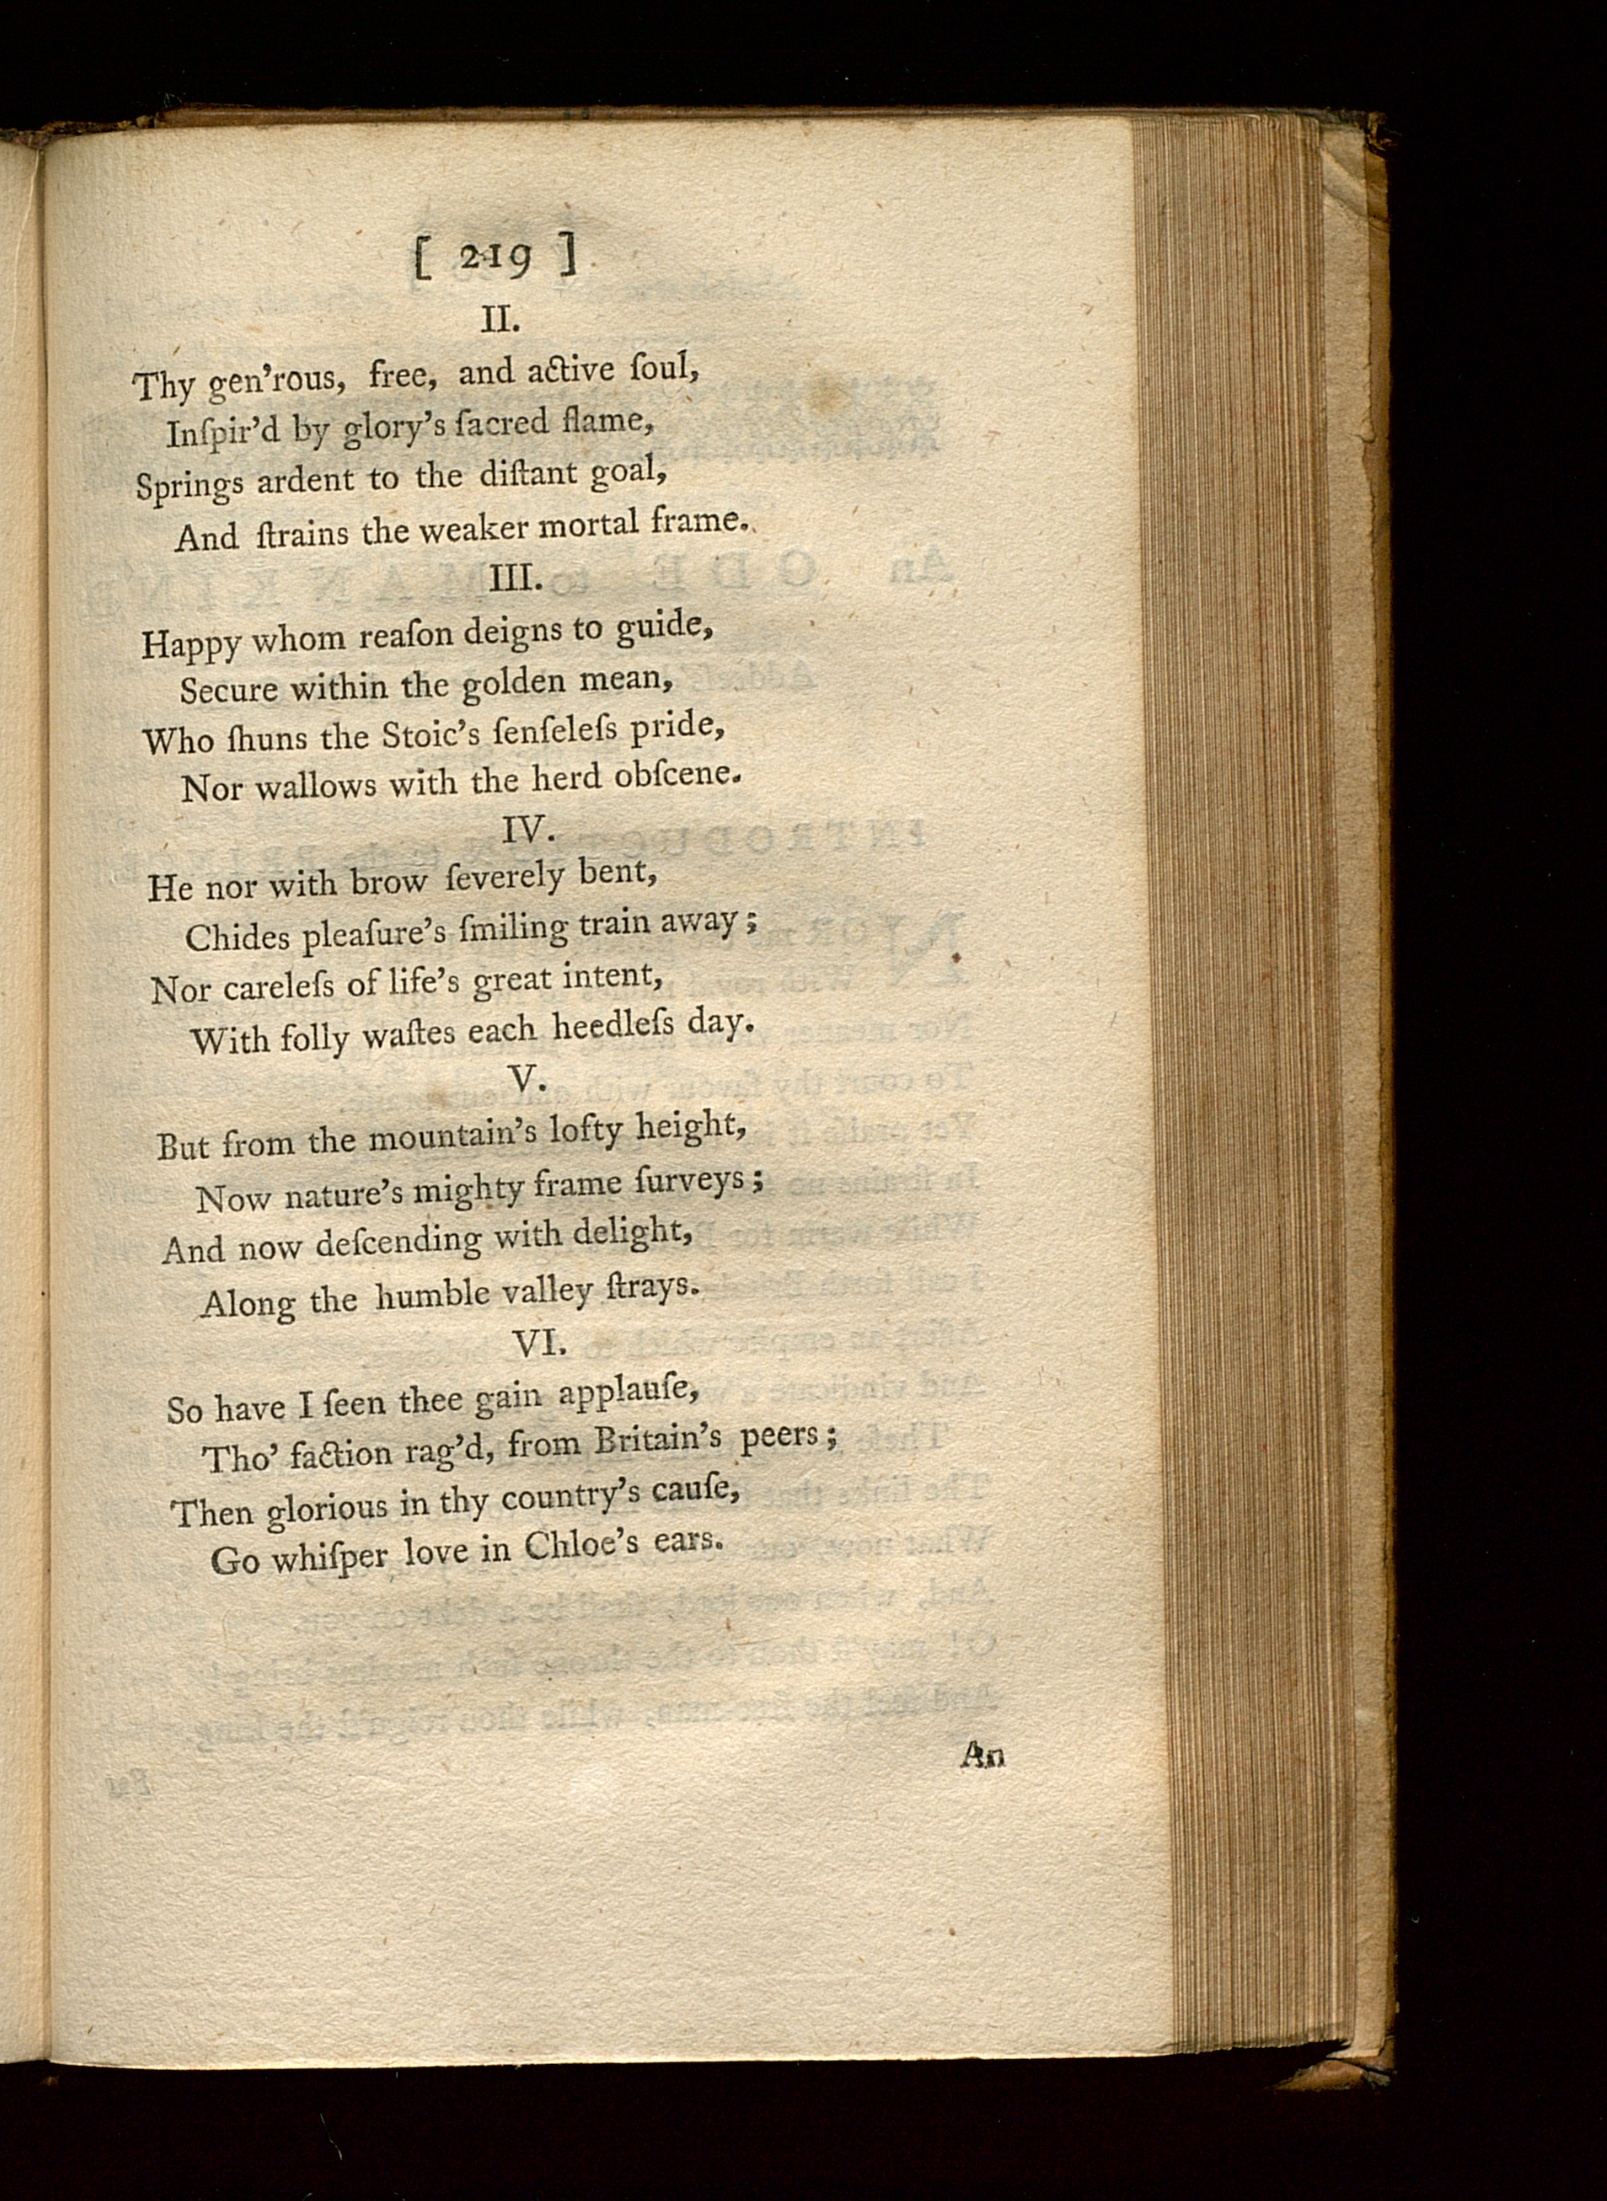 [ 219 ]
II.
Thy gen'rous, free, and active ſoul,
Inſpir'd by glory's ſacred flame,
Springs ardent to the diſtant goal,
And ſtrains the weaker mortal frame.
III.
Happy whom reaſon deigns to guide,
Secure within the golden mean,
Who ſhuns the Stoic's ſenſeleſs pride,
Nor wallows with the herd obſcene.
IV.
He nor with brow ſeverely bent,
Chides pleaſure's ſmiling train away;
Nor careleſs of life's great intent,
With folly waſtes each heedleſs day.
V.
But from the mountain's lofty height,
Now nature's mighty frame ſurveys;
And now deſcending with delight,
Along the humble valley ſtrays.
VI.
So have I ſeen thee gain applauſe,
Tho' faction rag'd, from Britain's peers;
Then glorious in thy country's cauſe,
Go whiſper love in Chloe's ears.
An